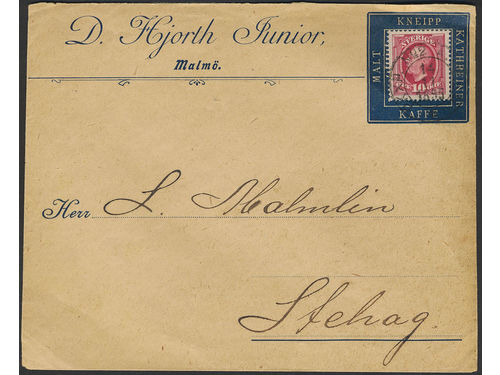 D. Hjorth Junior,
Malmö.
KNEIPP
MALT
KATHREINER
KAFFE
SVERIGE
10
Herr L. Malmlin
Stehag.